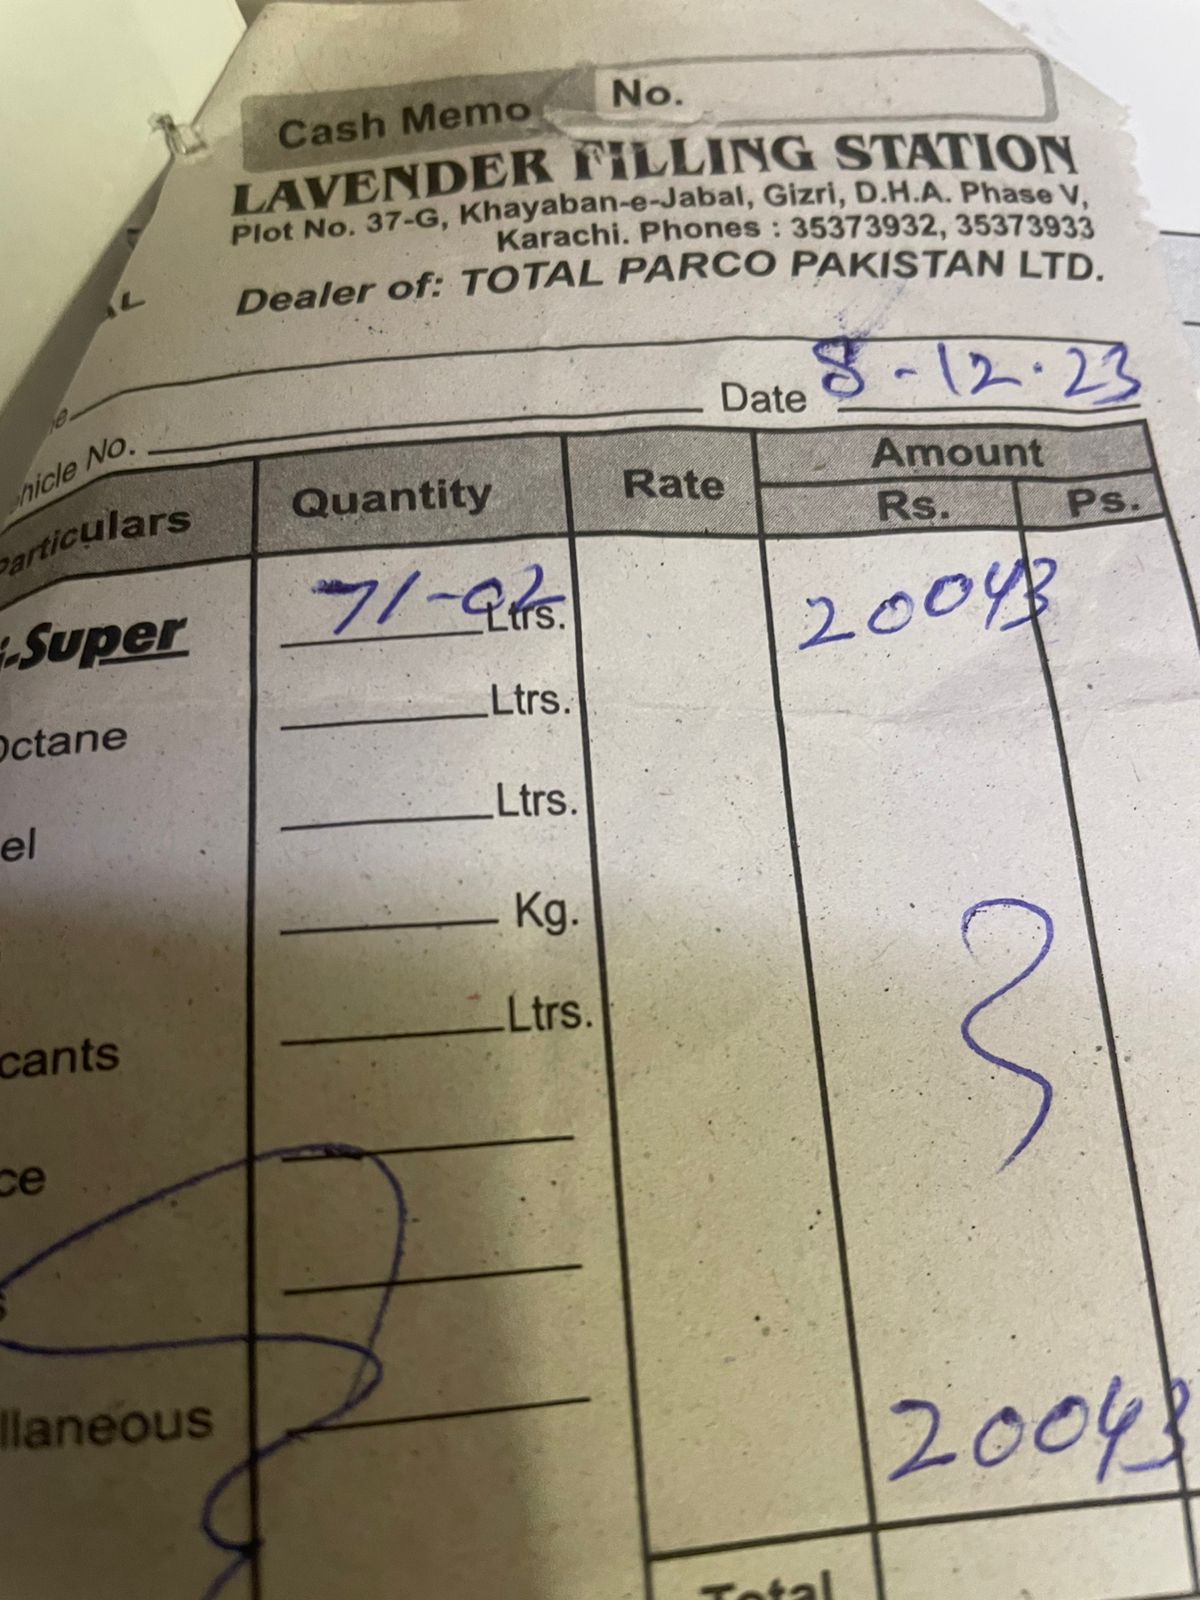 Cash Memo No.
LAVENDER FILLING STATION
Plot No. 37-G, Khayaban-e-Jabal, Gizri, D.H.A. Phase V,
Karachi. Phones : 35373932, 35373933
Dealer of: TOTAL PARCO PAKISTAN LTD.
Date 8-12.23
hicle No.
Particulars Quantity Rate Amount
Rs. Ps.
i-Super 71-02 Ltrs. 20043
Octane Ltrs.
el Ltrs.
Kg.
cants Ltrs.
ce
s
llaneous 20043
Total